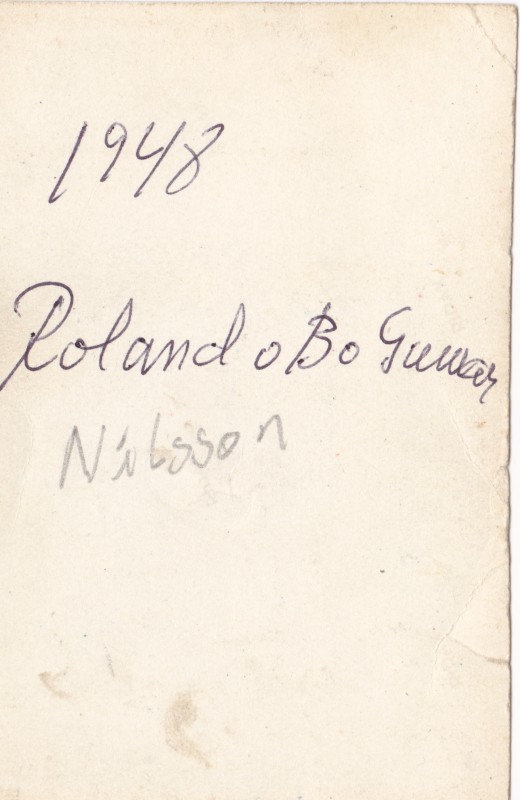 1948
Roland o Bo Gunnar
Nilsson